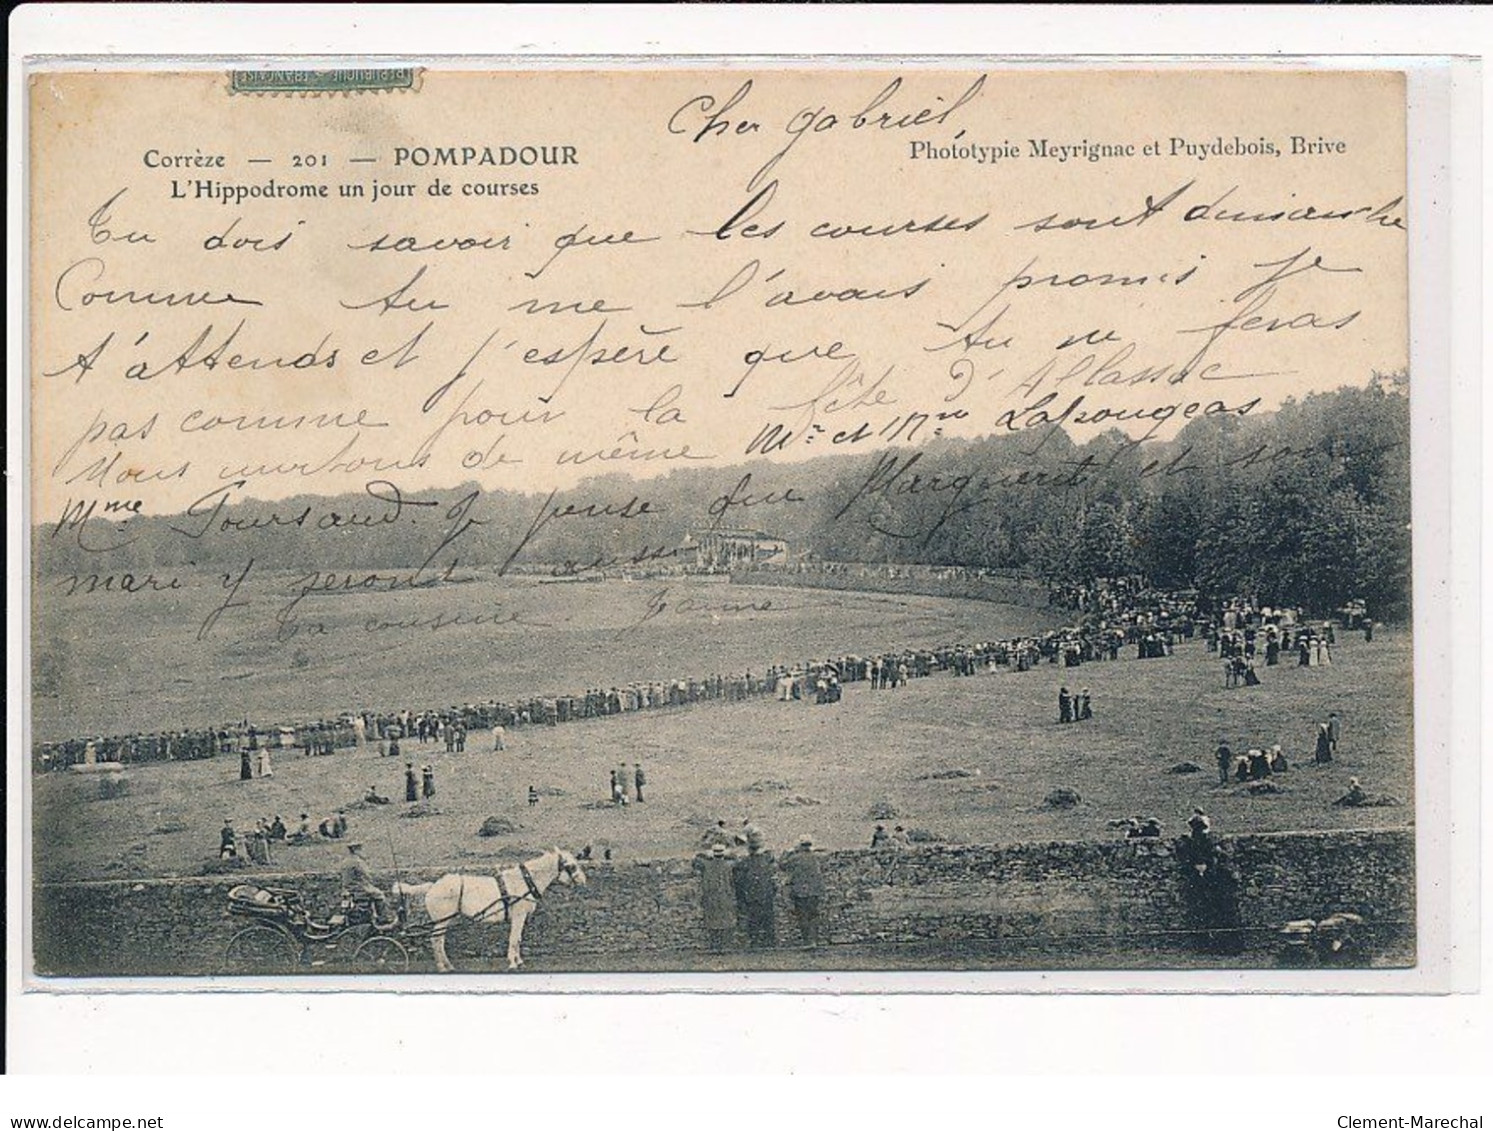 RÉPUBLIQUE FRANÇAISE
Cher Gabriel,
Corrèze — 201 — POMPADOUR
L'Hippodrome un jour de courses
Phototypie Meyrignac et Puydebois, Brive
Tu dois savoir que les courses sont dimanche
Comme tu me l'avais promis Je
t'attends et j'espère que tu ne feras
pas comme pour la fête d'Allassac
Nous invitons de même Mr et Mme
Mme Toursaud. Je pense que Marguerite et son
mari y seront aussi
Ta cousine Jeanne
delcampe.net
Clement-Marechal